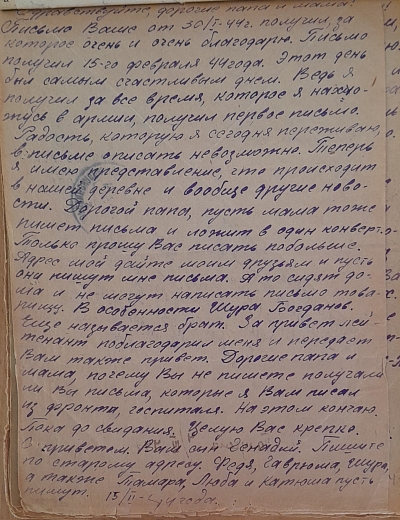 Здравствуйте, дорогие папа и мама!
Письмо Ваше от 30/I-44г. получил, за
которое очень и очень благодарю. Письмо
получил 15-го февраля 44 года. Этот день
был самым счастливым днем. Ведь я
получил за все время, которое я нахо-
жусь в армии, получил первое письмо.
Радость, которую я сегодня переживаю,
в письме описать невозможно. Теперь
я имею представление, что происходит
в нашей деревне и вообще другие ново-
сти. Дорогой папа, пусть мама тоже
пишет письма и ложит в один конверт.
Только прошу Вас писать побольше.
Адрес мой дайте моим друзьям и пусть
они пишут мне письма. А то сидят до-
ма и не могут написать письмо това-
рищу. В особенности Шура Богданов.
Еще называется брат. За привет лей-
тенант поблагодарил меня и передает
Вам также привет. Дорогие папа и
мама, почему Вы не пишете получали
ли Вы письма, которые я Вам писал
из фронта, госпиталя. На этом кончаю.
Пока до свидания. Целую Вас крепко.
С приветом Ваш сын Генадий. Пишите
по старому адресу. Федя, Гаврюша, Шура,
а также Тамара, Люба и Катюша пусть
пишут. 15/II-44 года.